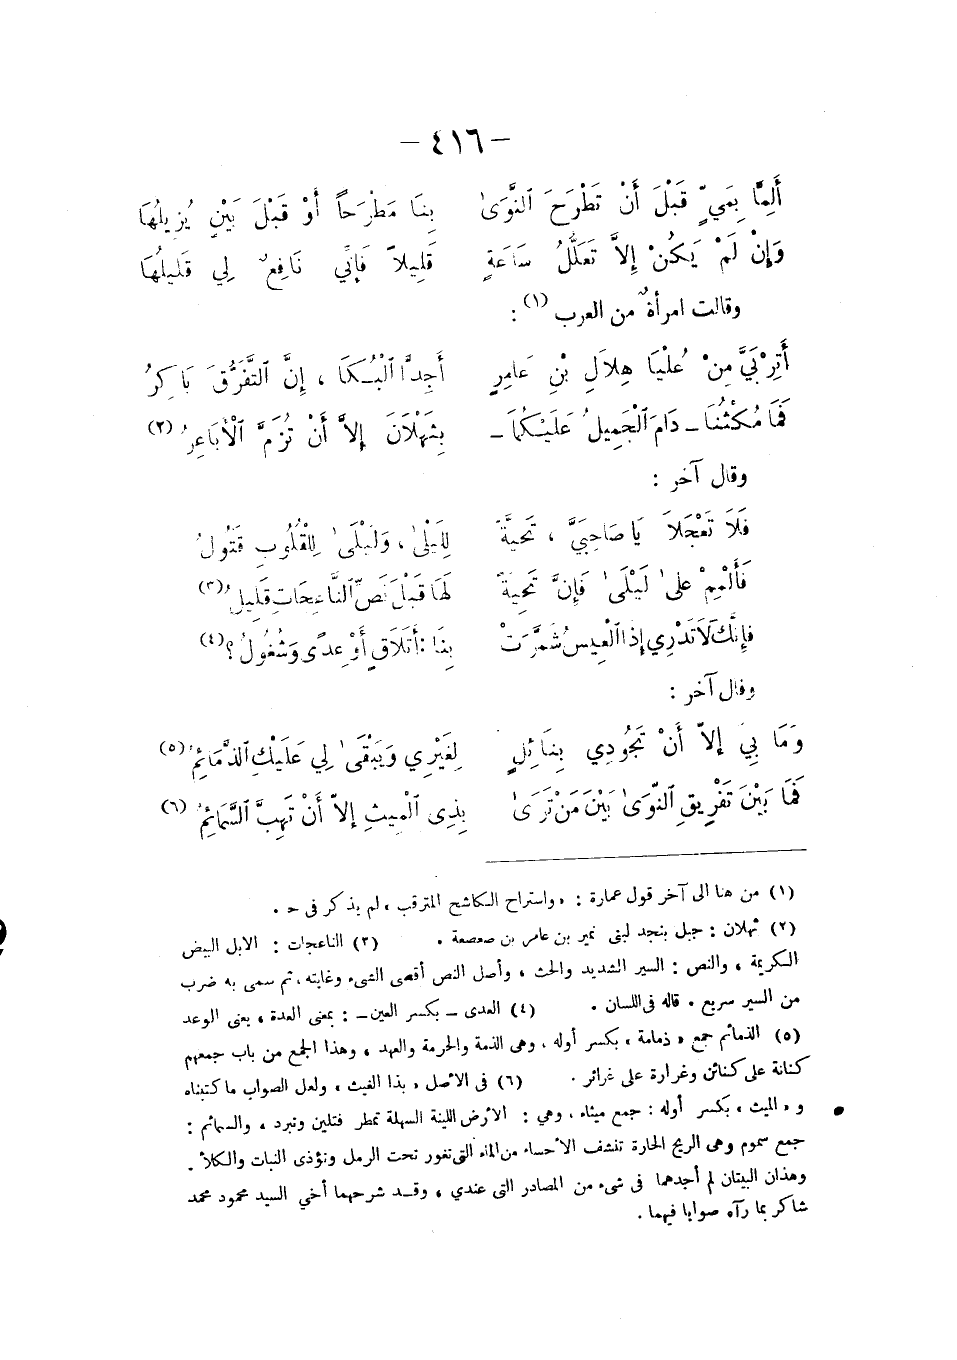 — ٤١٦ —
أَلِمَّا بِمَيٍّ قَبْلَ أَنْ تَطْرَحَ النَّوَىٰ بِنَا مَطْرَحاً أَوْ قَبْلَ بَيْنٍ يُزِيلُهَا
وَإِنْ لَمْ يَكُنْ إِلاَّ تَعَلُّلُ سَاعَةٍ قَلِيلاً فَإِنِّي نَافِعٌ لِي قَلِيلُهَا
وقالت امرأةٌ من العرب (١) :
أَتِرْبَيَّ مِنْ عُلْيَا هِلَالِ بْنِ عَامِرٍ أَجِدَّا الْبُكَا ، إِنَّ التَّفَرُّقَ بَاكِرُ
فَمَا مُكْثُنَا — دَامَ الْجَمِيلُ عَلَيْكُمَا — بِثَهْلَانَ إِلاَّ أَنْ تُزَمَّ الْأَبَاعِرُ (٢)
وقال آخر :
فَلَا تَعْجَلَا يَا صَاحِبَيَّ ، تَحِيَّةً لِلَيْلَىٰ ، وَلَيْلَىٰ لِلْقُلُوبِ قَتُولُ
فَأَلْمِمْ عَلَىٰ لَيْلَىٰ فَإِنَّ تَحِيَّةً لَهَا قَبْلَ نَصِّ النَّاعِجَاتِ قَلِيلُ (٣)
فَإِنَّكَ لَا تَدْرِي إِذَا الْعِيسُ شَمَّرَتْ بِنَا : أَتَلَاقٍ أَوْ عِدًى وَشُغُولُ ؟ (٤)
وقال آخر :
وَمَا بِيَ إِلاَّ أَنْ تَجُودِي بِنَائِلٍ لِغَيْرِي وَيَبْقَىٰ لِي عَلَيْكِ الذَّمَائِمُ (٥)
فَمَا بَيْنَ تَفْرِيقِ النَّوَىٰ بَيْنَ مَنْ تَرَىٰ بِذِي الْمِيثِ إِلاَّ أَنْ تَهِبَّ السَّمَائِمُ (٦)
(١) من هنا الى آخر قول عمارة : « واستراح الكاشح المترقب » لم يذكر فى ح .
(٢) ثهلان : جبل بنجد لبنى نمير بن عامر بن صعصعة . (٣) الناعجات : الابل البيض
الكريمة ، والنص : السير الشديد والحث ، وأصل النص أقصى الشىء وغايته ، ثم سمى به ضرب
من السير سريع . قاله فى اللسان . (٤) العدى — بكسر العين — : بمعنى العدة ، يعنى الوعد
(٥) الذمائم جمع « ذمامة » بكسر أوله ، وهى الذمة والحرمة والعهد ، وهذا الجمع من باب جمعهم
كنانة على كنائن وغرارة على غرائر . (٦) فى الأصل « بذا الغيث » ولعل الصواب ما كتبناه
و « الميث » بكسر أوله : جمع ميثاء ، وهي : الأرض اللينة السهلة تمطر فتلين وتبرد ، والسمائم :
جمع سموم وهى الريح الحارة تنشف الأحساء من الماء التى تغور تحت الرمل وتؤذى النبات والكلأ .
وهذان البيتان لم أجدهما فى شىء من المصادر التى عندي ، وقد شرحهما أخي السيد محمود محمد
شاكر بما رآه صوابا فيهما .